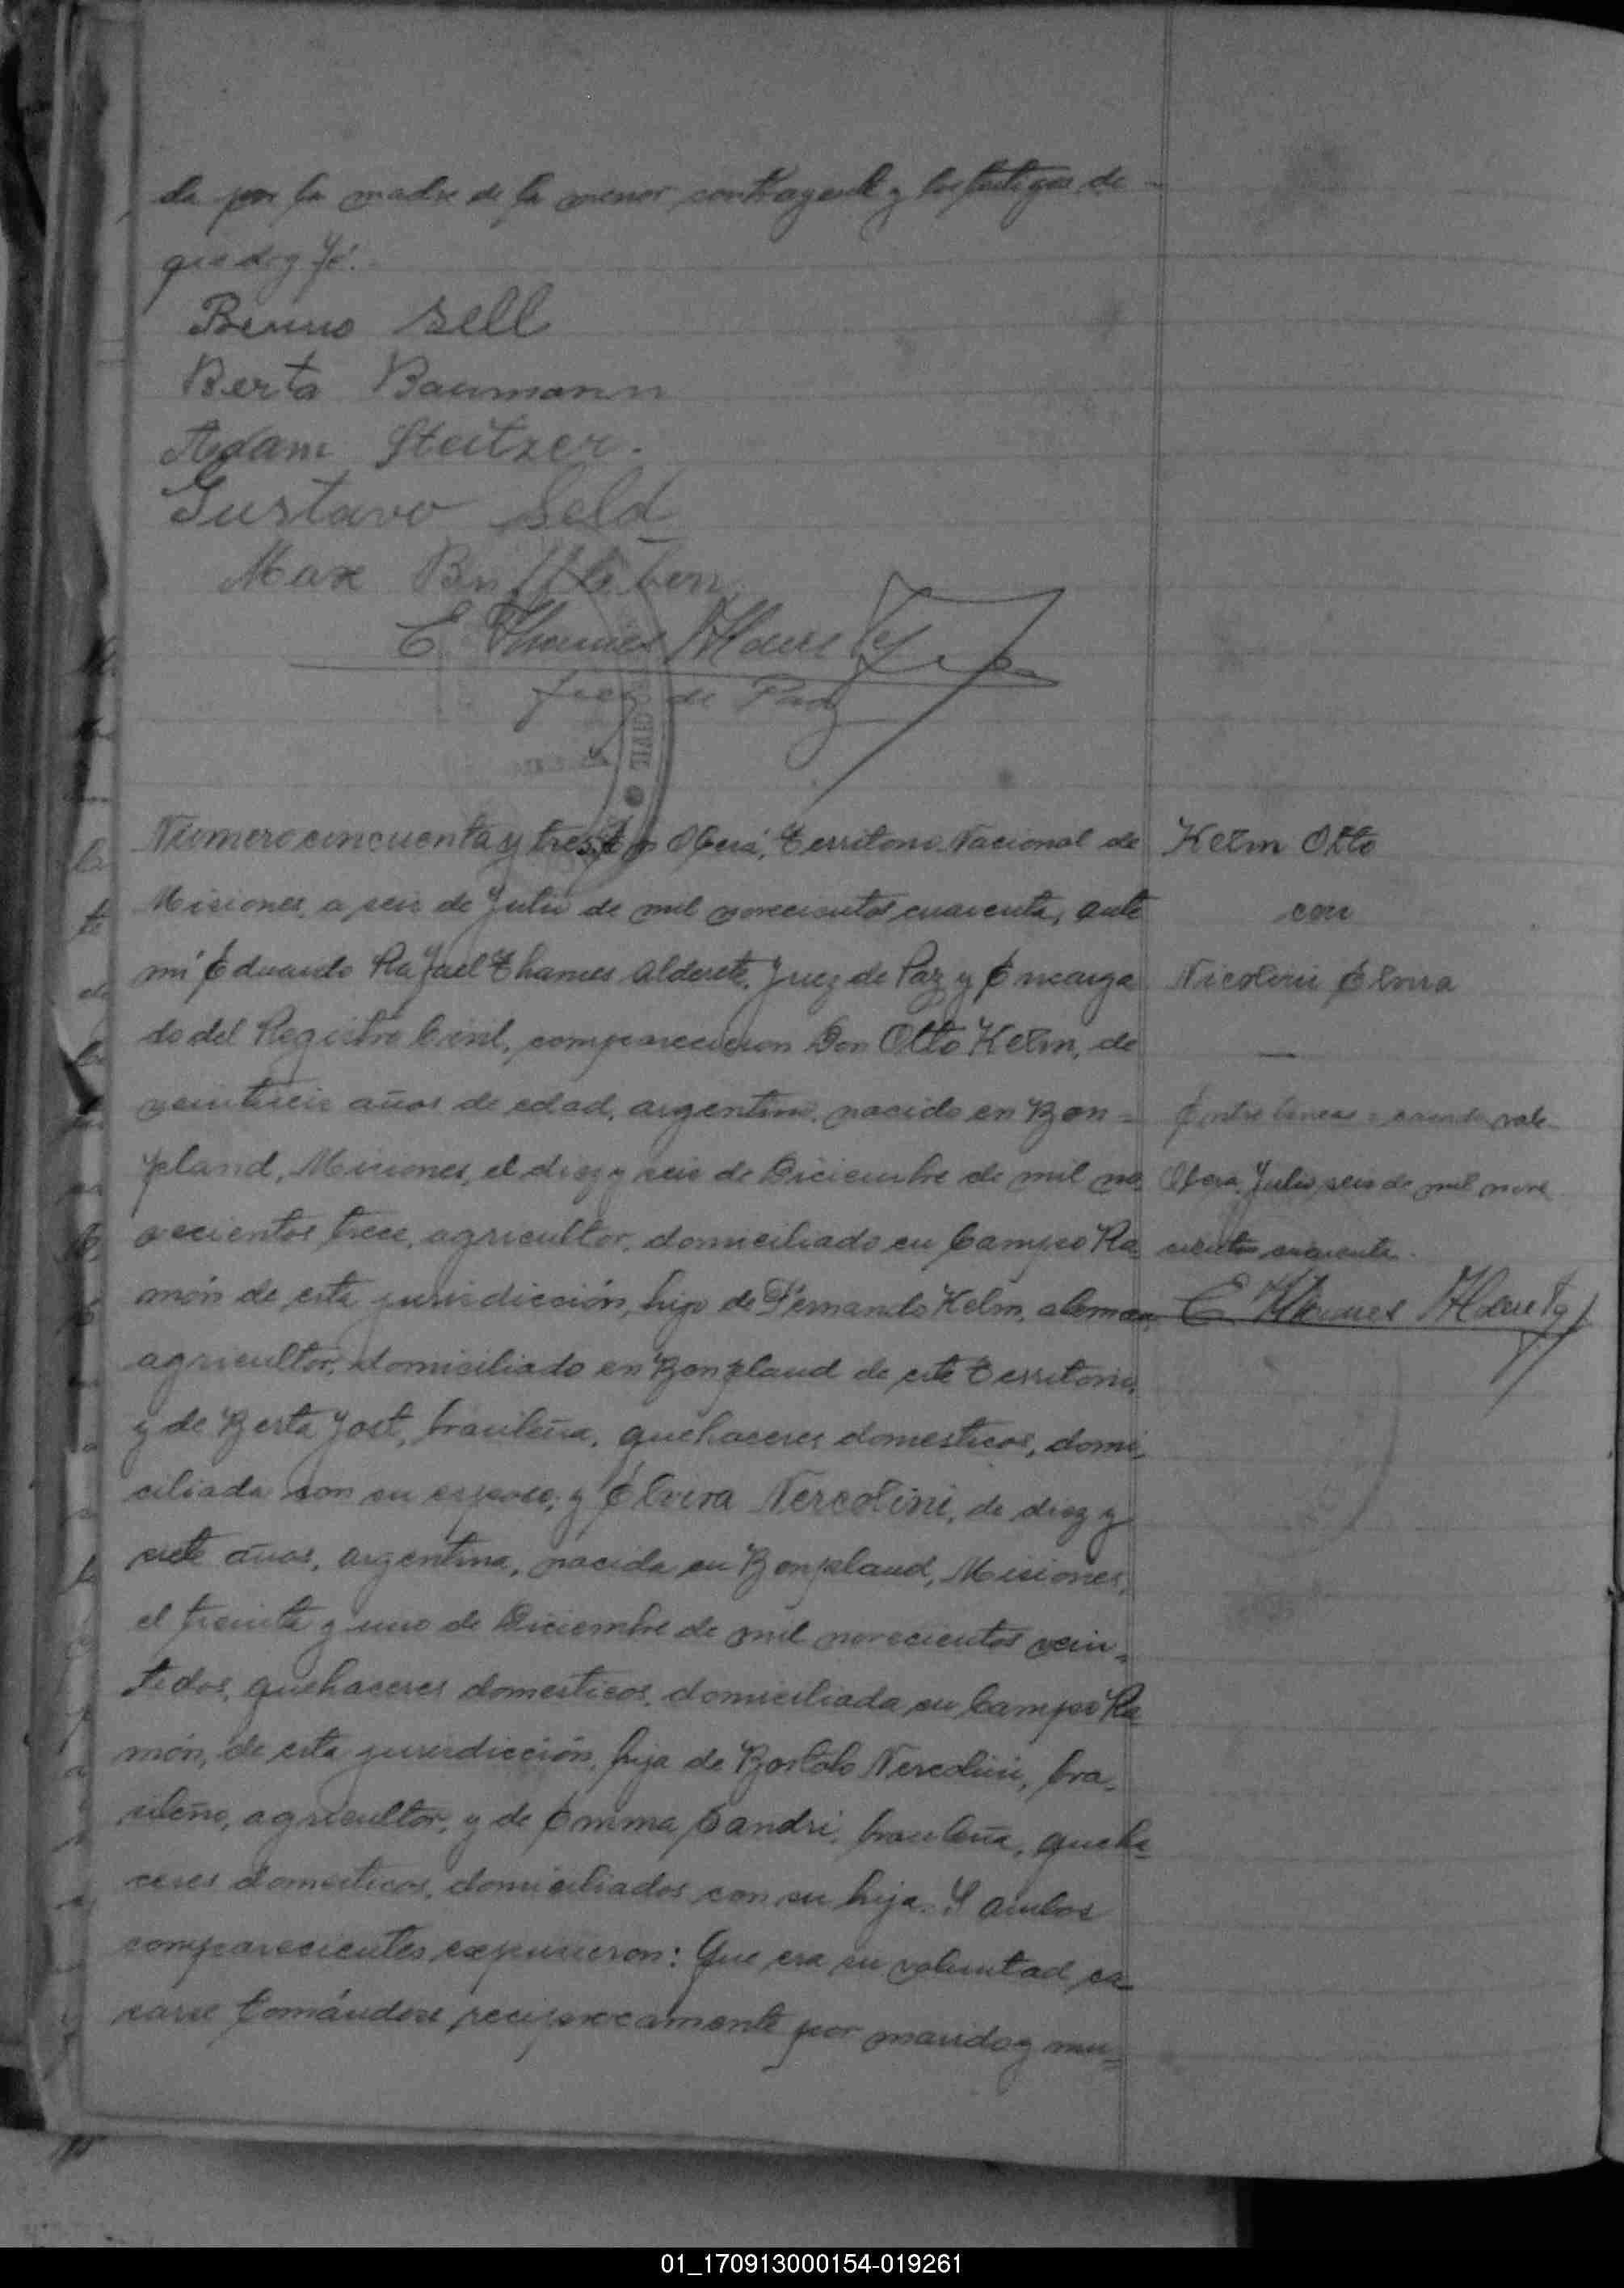 da por la madre de la menor contrayente y los testigos de
que doy fé.
Benno Sell
Berta Baumann
Adam Steitzer.
Gustavo Seld
Max
E Thames Alderete
Juez de Paz
CIVIL
Número cincuenta y tres. En Oberá, Territorio Nacional de
Misiones, a seis de Julio de mil novecientos cuarenta, ante
mí Eduardo Rafael Thames Alderete, Juez de Paz y Encarga
do del Registro Civil, comparecieron Don Otto Kelm, de
veintiseis años de edad, argentino, nacido en Bon=
pland, Misiones, el diez y seis de Diciembre de mil no
vecientos trece, agricultor, domiciliado en Campo Ra
món de esta jurisdicción, hijo de Fernando Kelm, aleman,
agricultor, domiciliado en Bonpland de este Territorio,
y de Berta Jost, brasileña, quehaceres domesticos, domi
ciliada con su esposo; y Elvira Nercolini, de diez y
siete años, argentina, nacida en Bonpland, Misiones,
el treinta y uno de Diciembre de mil novecientos vein=
tidos, quehaceres domesticos, domiciliada en Campo Ra
món, de esta jurisdicción, hija de Bortolo Nercolini, bra=
sileño, agricultor, y de Emma Candri, brasileña, queha=
ceres domesticos, domiciliados con su hija. Y ambos
comparecientes expusieron: Que era su voluntad ca=
sarse tomándose reciprocamente por marido y mu=
Kelm Otto
con
Nicolini Elvira
—
Entre lineas = vale
Oberá, Julio seis de mil nove
cientos cuarenta.
E Thames Alderete
01_170913000154-019261